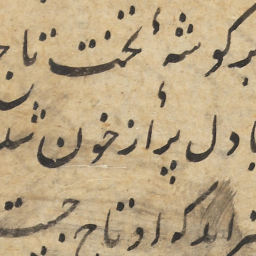 بر گوشهٔ تخت تاج
با دل پر از خون شد
که او تاج جست